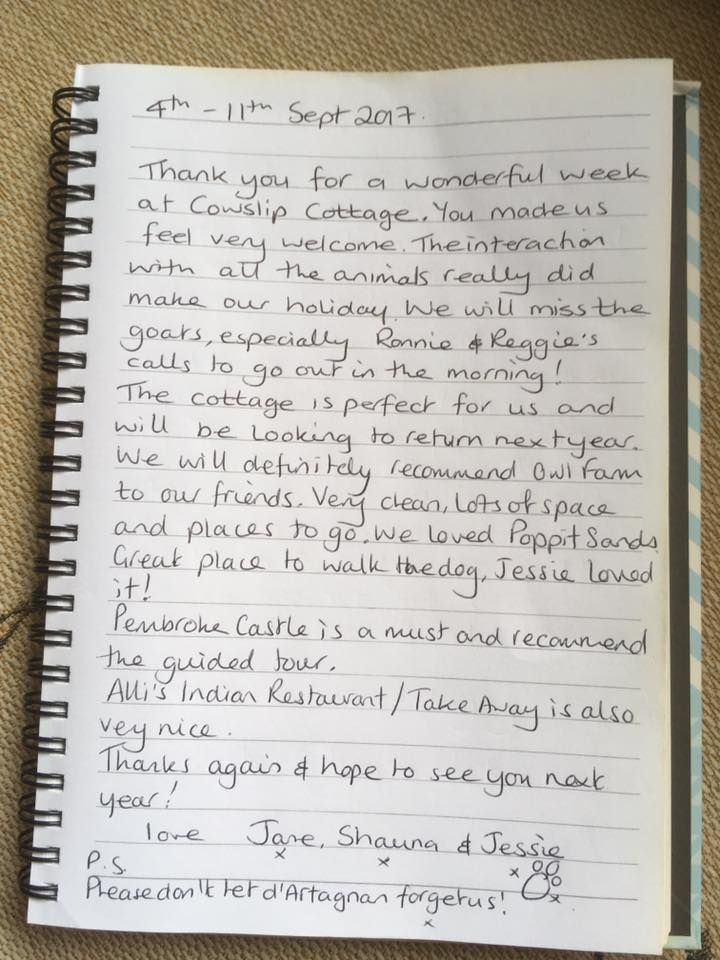 4th - 11th Sept 2017.
Thank you for a wonderful week
at Cowslip Cottage. You made us
feel very welcome. The interaction
with all the animals really did
make our holiday. We will miss the
goats, especially Ronnie & Reggie's
calls to go out in the morning!
The cottage is perfect for us and
will be looking to return next year.
We will definitely recommend Owl Farm
to our friends. Very clean, lots of space
and places to go. We loved Poppit Sands
Great place to walk the dog, Jessie loved
it!
Pembroke Castle is a must and recommend
the guided tour.
Alli's Indian Restaurant/Take Away is also
vey nice.
Thanks again & hope to see you next
year!
love Jane, Shauna & Jessie
x x x
x
P.S.
Please don't let d'Artagnan forget us!
x